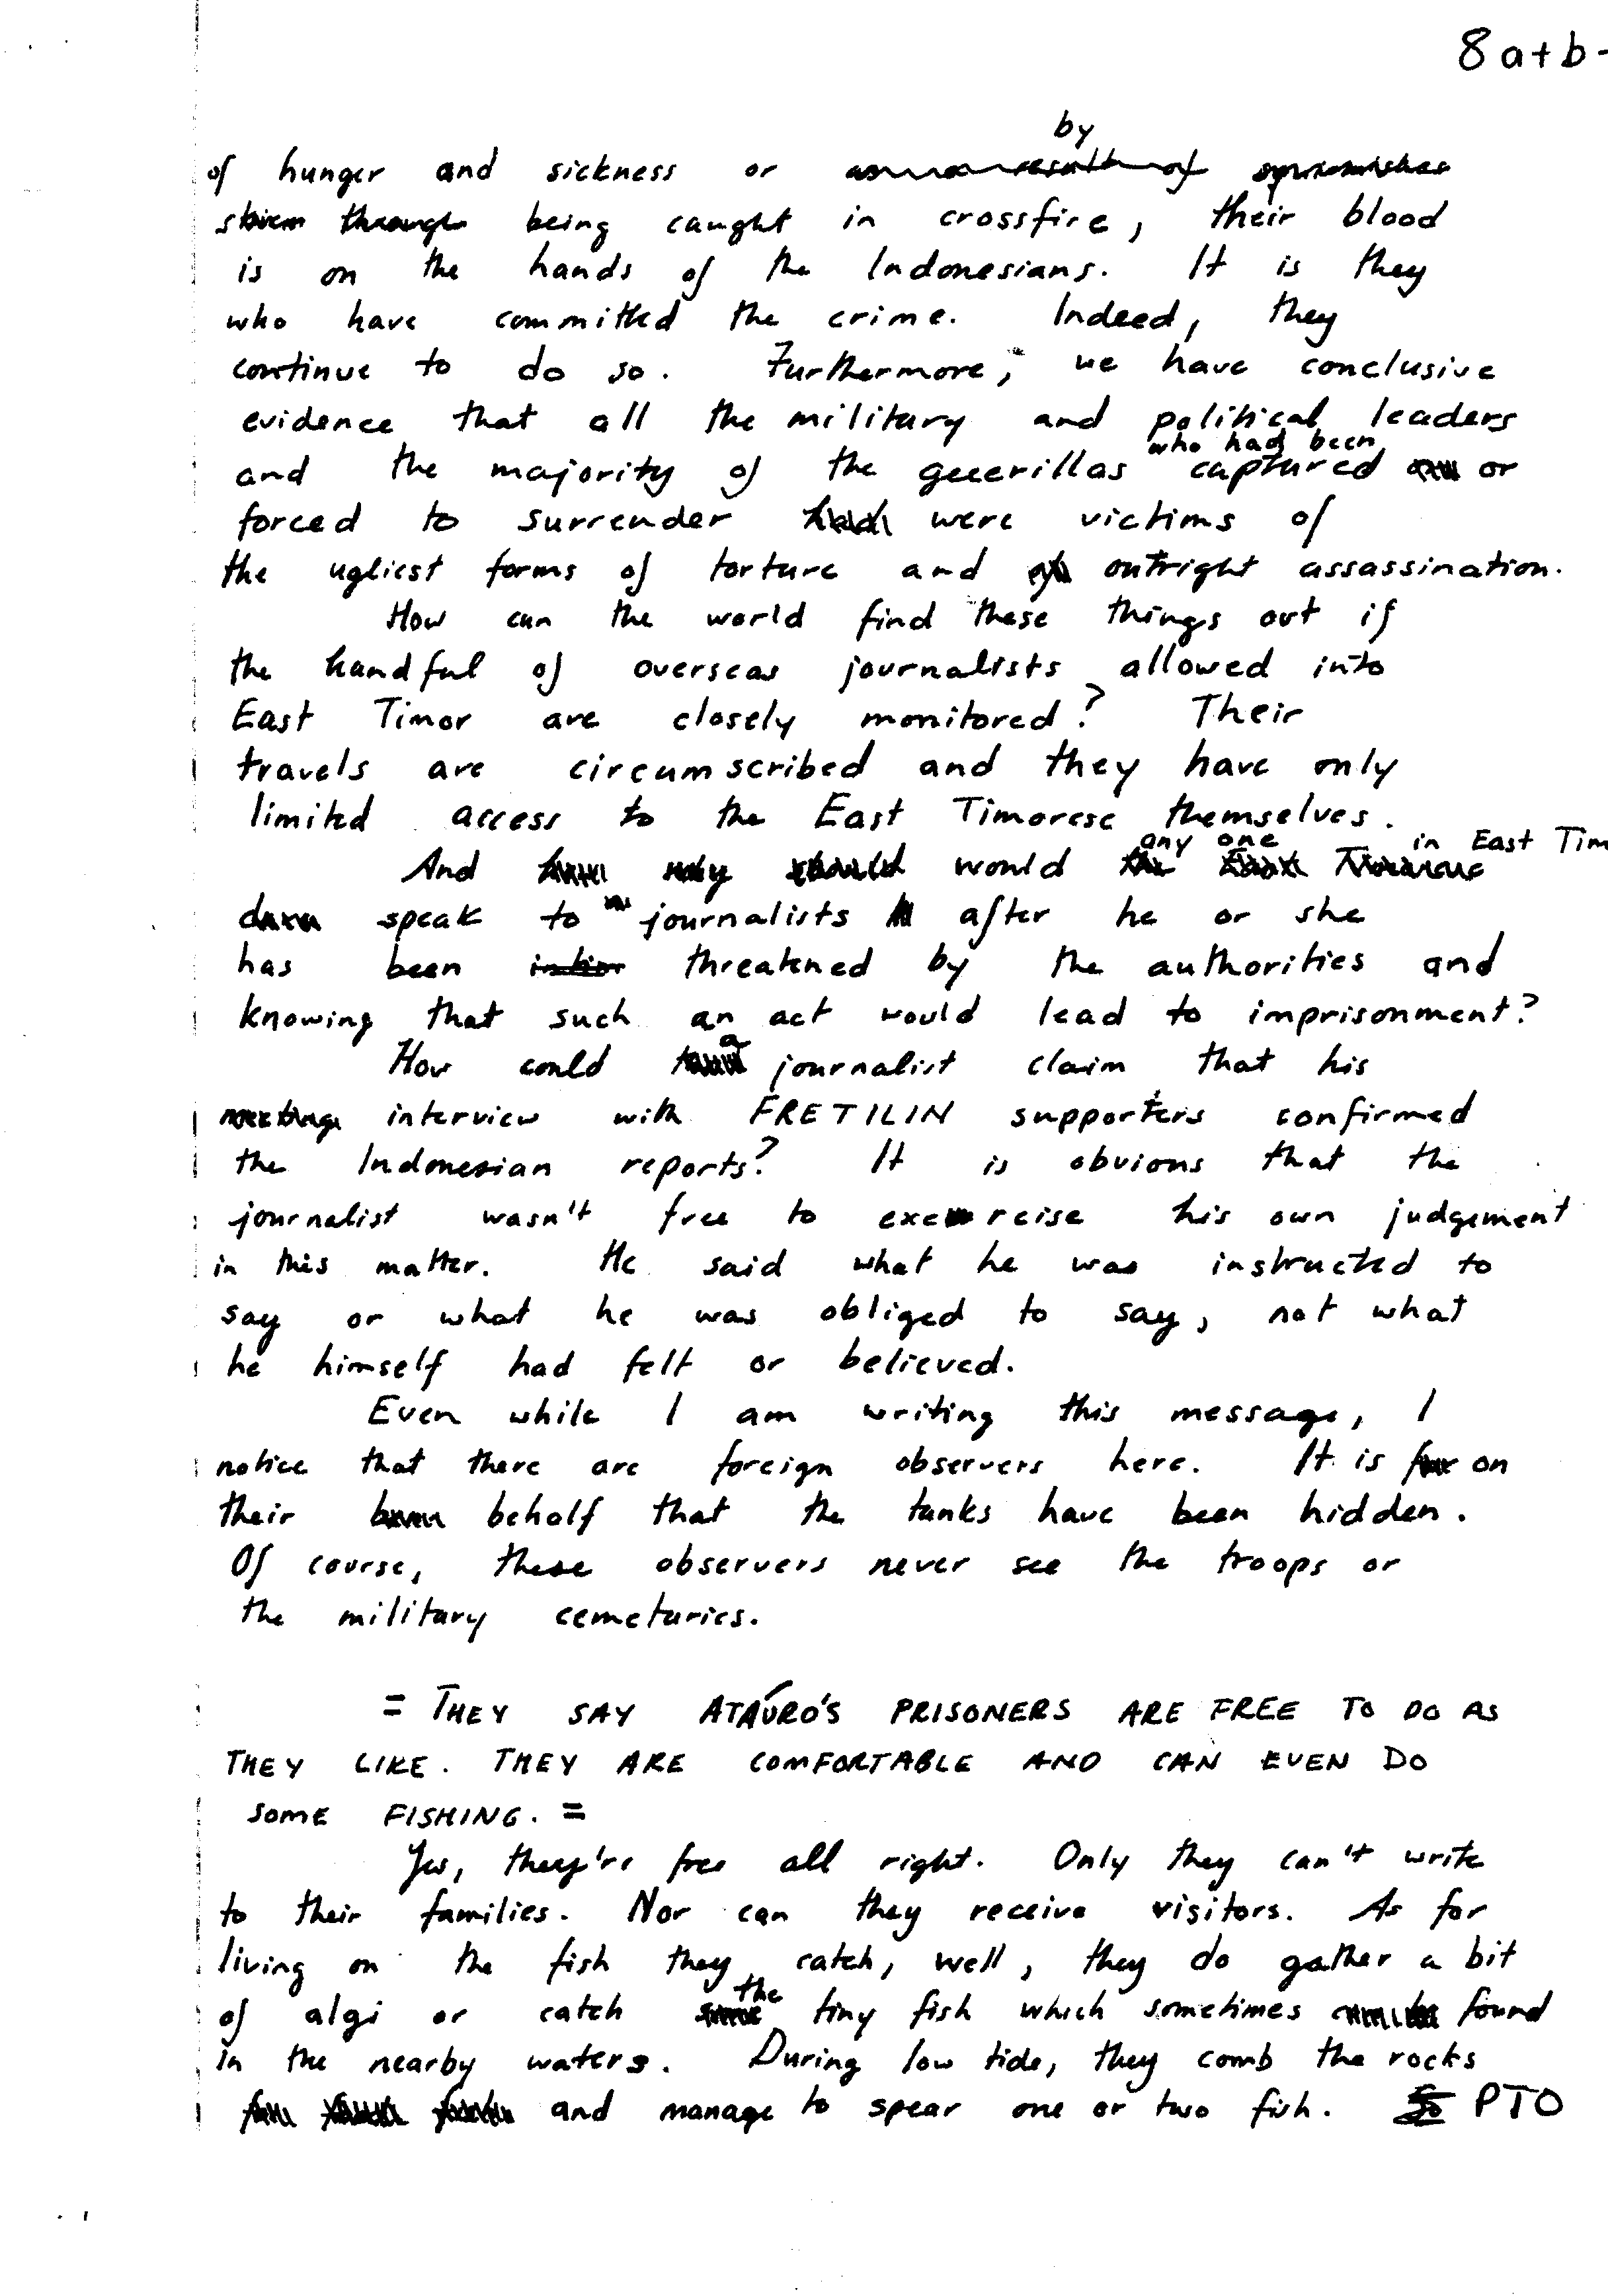 8 a+b-
by
of hunger and sickness or as a result of
being caught in crossfire, their blood
is on the hands of the Indonesians. It is they
who have committed the crime. Indeed, they
continue to do so. Furthermore, we have conclusive
evidence that all the military and political leaders
who had been
and the majority of the guerillas captured or
forced to surrender were victims of
the ugliest forms of torture and outright assassination.
How can the world find these things out if
the handful of overseas journalists allowed into
East Timor are closely monitored? Their
travels are circumscribed and they have only
limited access to the East Timorese themselves.
any one in East Tim
And would
speak to journalists after he or she
has been threatened by the authorities and
knowing that such an act would lead to imprisonment?
a
How could journalist claim that his
interview with FRETILIN supporters confirmed
the Indonesian reports? It is obvious that the
journalist wasn't free to exercise his own judgement
in this matter. He said what he was instructed to
say or what he was obliged to say, not what
he himself had felt or believed.
Even while I am writing this message, I
notice that there are foreign observers here. It is on
their behalf that the tanks have been hidden.
Of course, these observers never see the troops or
the military cemetaries.
= THEY SAY ATAÚRO'S PRISONERS ARE FREE TO DO AS
THEY LIKE. THEY ARE COMFORTABLE AND CAN EVEN DO
SOME FISHING. =
Yes, they're free all right. Only they can't write
to their families. Nor can they receive visitors. As for
living on the fish they catch, well, they do gather a bit
the
of algi or catch tiny fish which sometimes found
in the nearby waters. During low tide, they comb the rocks
and manage to spear one or two fish. So PTO